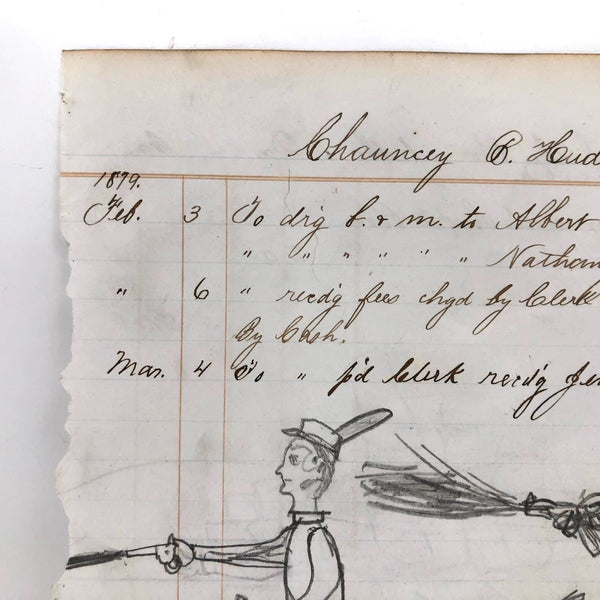 Chauncey B. Hud
1879.
Feb. 3 To drg b. & m. to Albert
" " " " " " Nathan
" 6 " recd'g fees chgd by Clerk
By Cash.
Mar. 4 To " p'd Clerk recd'g Jer